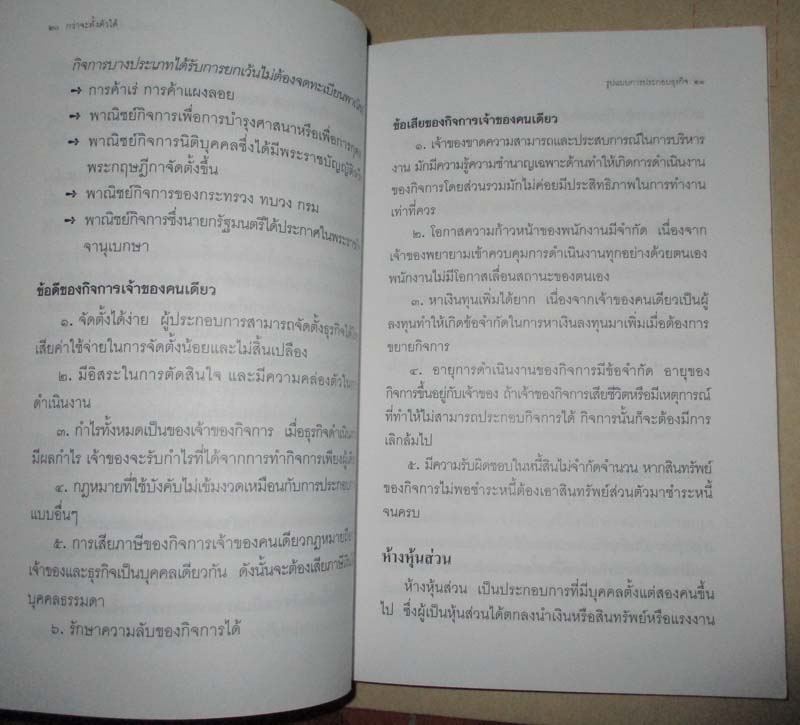 ๒๐ กว่าจะตั้งตัวได้
กิจการบางประเภทได้รับการยกเว้นไม่ต้องจดทะเบียน
→ การค้าเร่ การค้าแผงลอย
→ พาณิชย์กิจการเพื่อการบำรุงศาสนาหรือเพื่อการกุศล
→ พาณิชย์กิจการนิติบุคคลซึ่งได้มีพระราชบัญญัติ
พระกฤษฎีกาจัดตั้งขึ้น
→ พาณิชย์กิจการของกระทรวง ทบวง กรม
→ พาณิชย์กิจการซึ่งนายกรัฐมนตรีได้ประกาศใน
จานุเบกษา
ข้อดีของกิจการเจ้าของคนเดียว
๑. จัดตั้งได้ง่าย ผู้ประกอบการสามารถจัดตั้งธุรกิจได้
เสียค่าใช้จ่ายในการจัดตั้งน้อยและไม่สิ้นเปลือง
๒. มีอิสระในการตัดสินใจ และมีความคล่องตัวใน
ดำเนินงาน
๓. กำไรทั้งหมดเป็นของเจ้าของกิจการ เมื่อธุรกิจดำเนิน
มีผลกำไร เจ้าของจะรับกำไรที่ได้จากการทำกิจการเพียง
๔. กฎหมายที่ใช้บังคับไม่เข้มงวดเหมือนกับการประกอบ
แบบอื่นๆ
๕. การเสียภาษีของกิจการเจ้าของคนเดียวกฎหมาย
เจ้าของและธุรกิจเป็นบุคคลเดียวกัน ดังนั้นจะต้องเสียภาษี
บุคคลธรรมดา
๖. รักษาความลับของกิจการได้
รูปแบบการประกอบธุรกิจ ๒๑
ข้อเสียของกิจการเจ้าของคนเดียว
๑. เจ้าของขาดความสามารถและประสบการณ์ในการบริหาร
งาน มักมีความรู้ความชำนาญเฉพาะด้านทำให้เกิดการดำเนินงาน
ของกิจการโดยส่วนรวมมักไม่ค่อยมีประสิทธิภาพในการทำงาน
เท่าที่ควร
๒. โอกาสความก้าวหน้าของพนักงานมีจำกัด เนื่องจาก
เจ้าของพยายามเข้าควบคุมการดำเนินงานทุกอย่างด้วยตนเอง
พนักงานไม่มีโอกาสเลื่อนสถานะของตนเอง
๓. หาเงินทุนเพิ่มได้ยาก เนื่องจากเจ้าของคนเดียวเป็นผู้
ลงทุนทำให้เกิดข้อจำกัดในการหาเงินลงทุนมาเพิ่มเมื่อต้องการ
ขยายกิจการ
๔. อายุการดำเนินงานของกิจการมีข้อจำกัด อายุของ
กิจการขึ้นอยู่กับเจ้าของ ถ้าเจ้าของกิจการเสียชีวิตหรือมีเหตุการณ์
ที่ทำให้ไม่สามารถประกอบกิจการได้ กิจการนั้นก็จะต้องมีการ
เลิกล้มไป
๕. มีความรับผิดชอบในหนี้สินไม่จำกัดจำนวน หากสินทรัพย์
ของกิจการไม่พอชำระหนี้ต้องเอาสินทรัพย์ส่วนตัวมาชำระหนี้
จนครบ
ห้างหุ้นส่วน
ห้างหุ้นส่วน เป็นประกอบการที่มีบุคคลตั้งแต่สองคนขึ้น
ไป ซึ่งผู้เป็นหุ้นส่วนได้ตกลงนำเงินหรือสินทรัพย์หรือแรงงาน